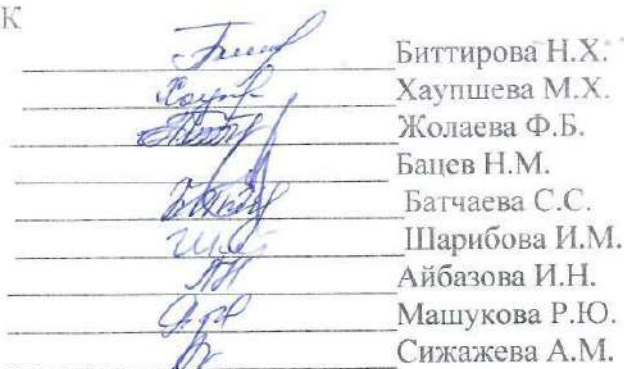 К
Биттирова Н.Х.
Хаупшева М.Х.
Жолаева Ф.Б.
Бацев Н.М.
Батчаева С.С.
Шарибова И.М.
Айбазова И.Н.
Машукова Р.Ю.
Сижажева А.М.